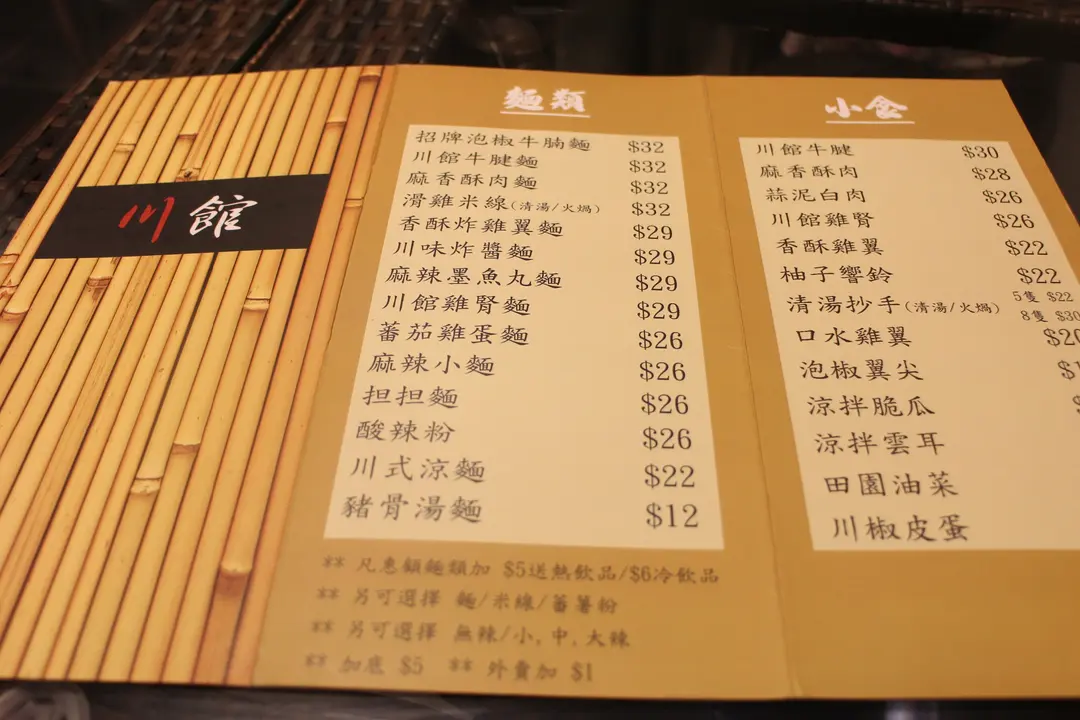 川館
麵類
招牌泡椒牛腩麵 $32
川館牛腱麵 $32
麻香酥肉麵 $32
滑雞米線(清湯/火焗) $32
香酥炸雞翼麵 $29
川味炸醬麵 $29
麻辣墨魚丸麵 $29
川館雞腎麵 $29
蕃茄雞蛋麵 $26
麻辣小麵 $26
担担麵 $26
酸辣粉 $26
川式涼麵 $22
豬骨湯麵 $12
** 凡惠顧麵類加 $5送熱飲品/$6冷飲品
** 另可選擇 麵/米線/蕃薯粉
** 另可選擇 無辣/小,中,大辣
** 加底 $5 ** 外賣加 $1
小食
川館牛腱 $30
麻香酥肉 $28
蒜泥白肉 $26
川館雞腎 $26
香酥雞翼 $22
柚子響鈴 $22
清湯抄手(清湯/火焗) 5隻 $22
8隻 $30
口水雞翼
泡椒翼尖
涼拌脆瓜
涼拌雲耳
田園油菜
川椒皮蛋